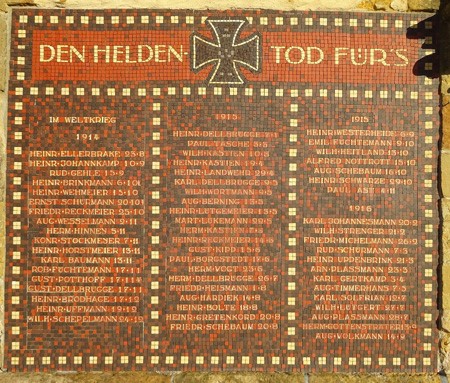 DEN HELDEN-TOD FÜR'S
IM WELTKRIEG
1914
HEINR·ELLERBRAKE 23·8
HEINR·JOHANNKAMP 10·9
RUD·GEHLE 15·9
HEINR·BRINKMANN 6·10
HEINR·WEHMEIER 13·10
ERNST SCHURMANN 20·10
FRIEDR·RECKMEIER 25·10
AUG·WESSELMANN 2·11
HERM·HINNEN 5·11
KONR·STOCKMEIER 7·11
HEINR·HORSTMEIER 13·11
KARL BAUMANN 13·11
ROB·FÜCHTEMANN 17·11
GUST·POTTHOFF 17·11
GUST·DELLBRÜGGE 17·11
HEINR·BRODHAGE 17·12
HEINR·UFFMANN 19·12
WILH·SCHEPELMANN 24·12
1915
HEINR·DELLBRÜGGE
PAUL TASCHE 5·5
WILH·KASTIEN 10·5
HEINR·KASTIEN
HEINR·LANDWEHR 29·4
KARL·DELLBRÜGGE 9·5
AUG·BERNING 13·5
HERM·KASTIEN
HEINR·RECKMEIER 14·6
PAUL·BORGSTEDT 17·6
HERM·VOGT 25·6
HERM·DELLBRÜGGE 26·7
FRIEDR·HEISMANN 1·8
AUG·HARDIEK 14·8
HEINR·BOLTE 18·8
HEINR·GRETENKORD 20·8
FRIEDR·SCHEBAUM 20·8
1915
HEINR·WESTERHEIDE 6·9
EMIL·FÜCHTEMANN 9·10
WILH·HETTLAND 13·10
ALFRED NOTTROTT 13·10
AUG·SCHEBAUM 16·10
HEINR·SCHWARZE 29·10
PAUL AST
1916
KARL·JOHANNESMANN 20·2
WILH·STRENGER 21·2
FRIEDR·MICHELMANN 26·2
RUD·SCHURMANN 7·3
HEINR·UPPENBRINK 21·3
AUG·PLASSMANN 23·3
KARL·GERTKAMP 3·4
AUG·TIMMERHANS 7·5
KARL·SOLFRIAN 12·7
WILH·LÜTGERT 27·7
AUG·PLASSMANN 28·7
HERM·GOTTENSTRATER
AUG·VOLKMANN 14·9